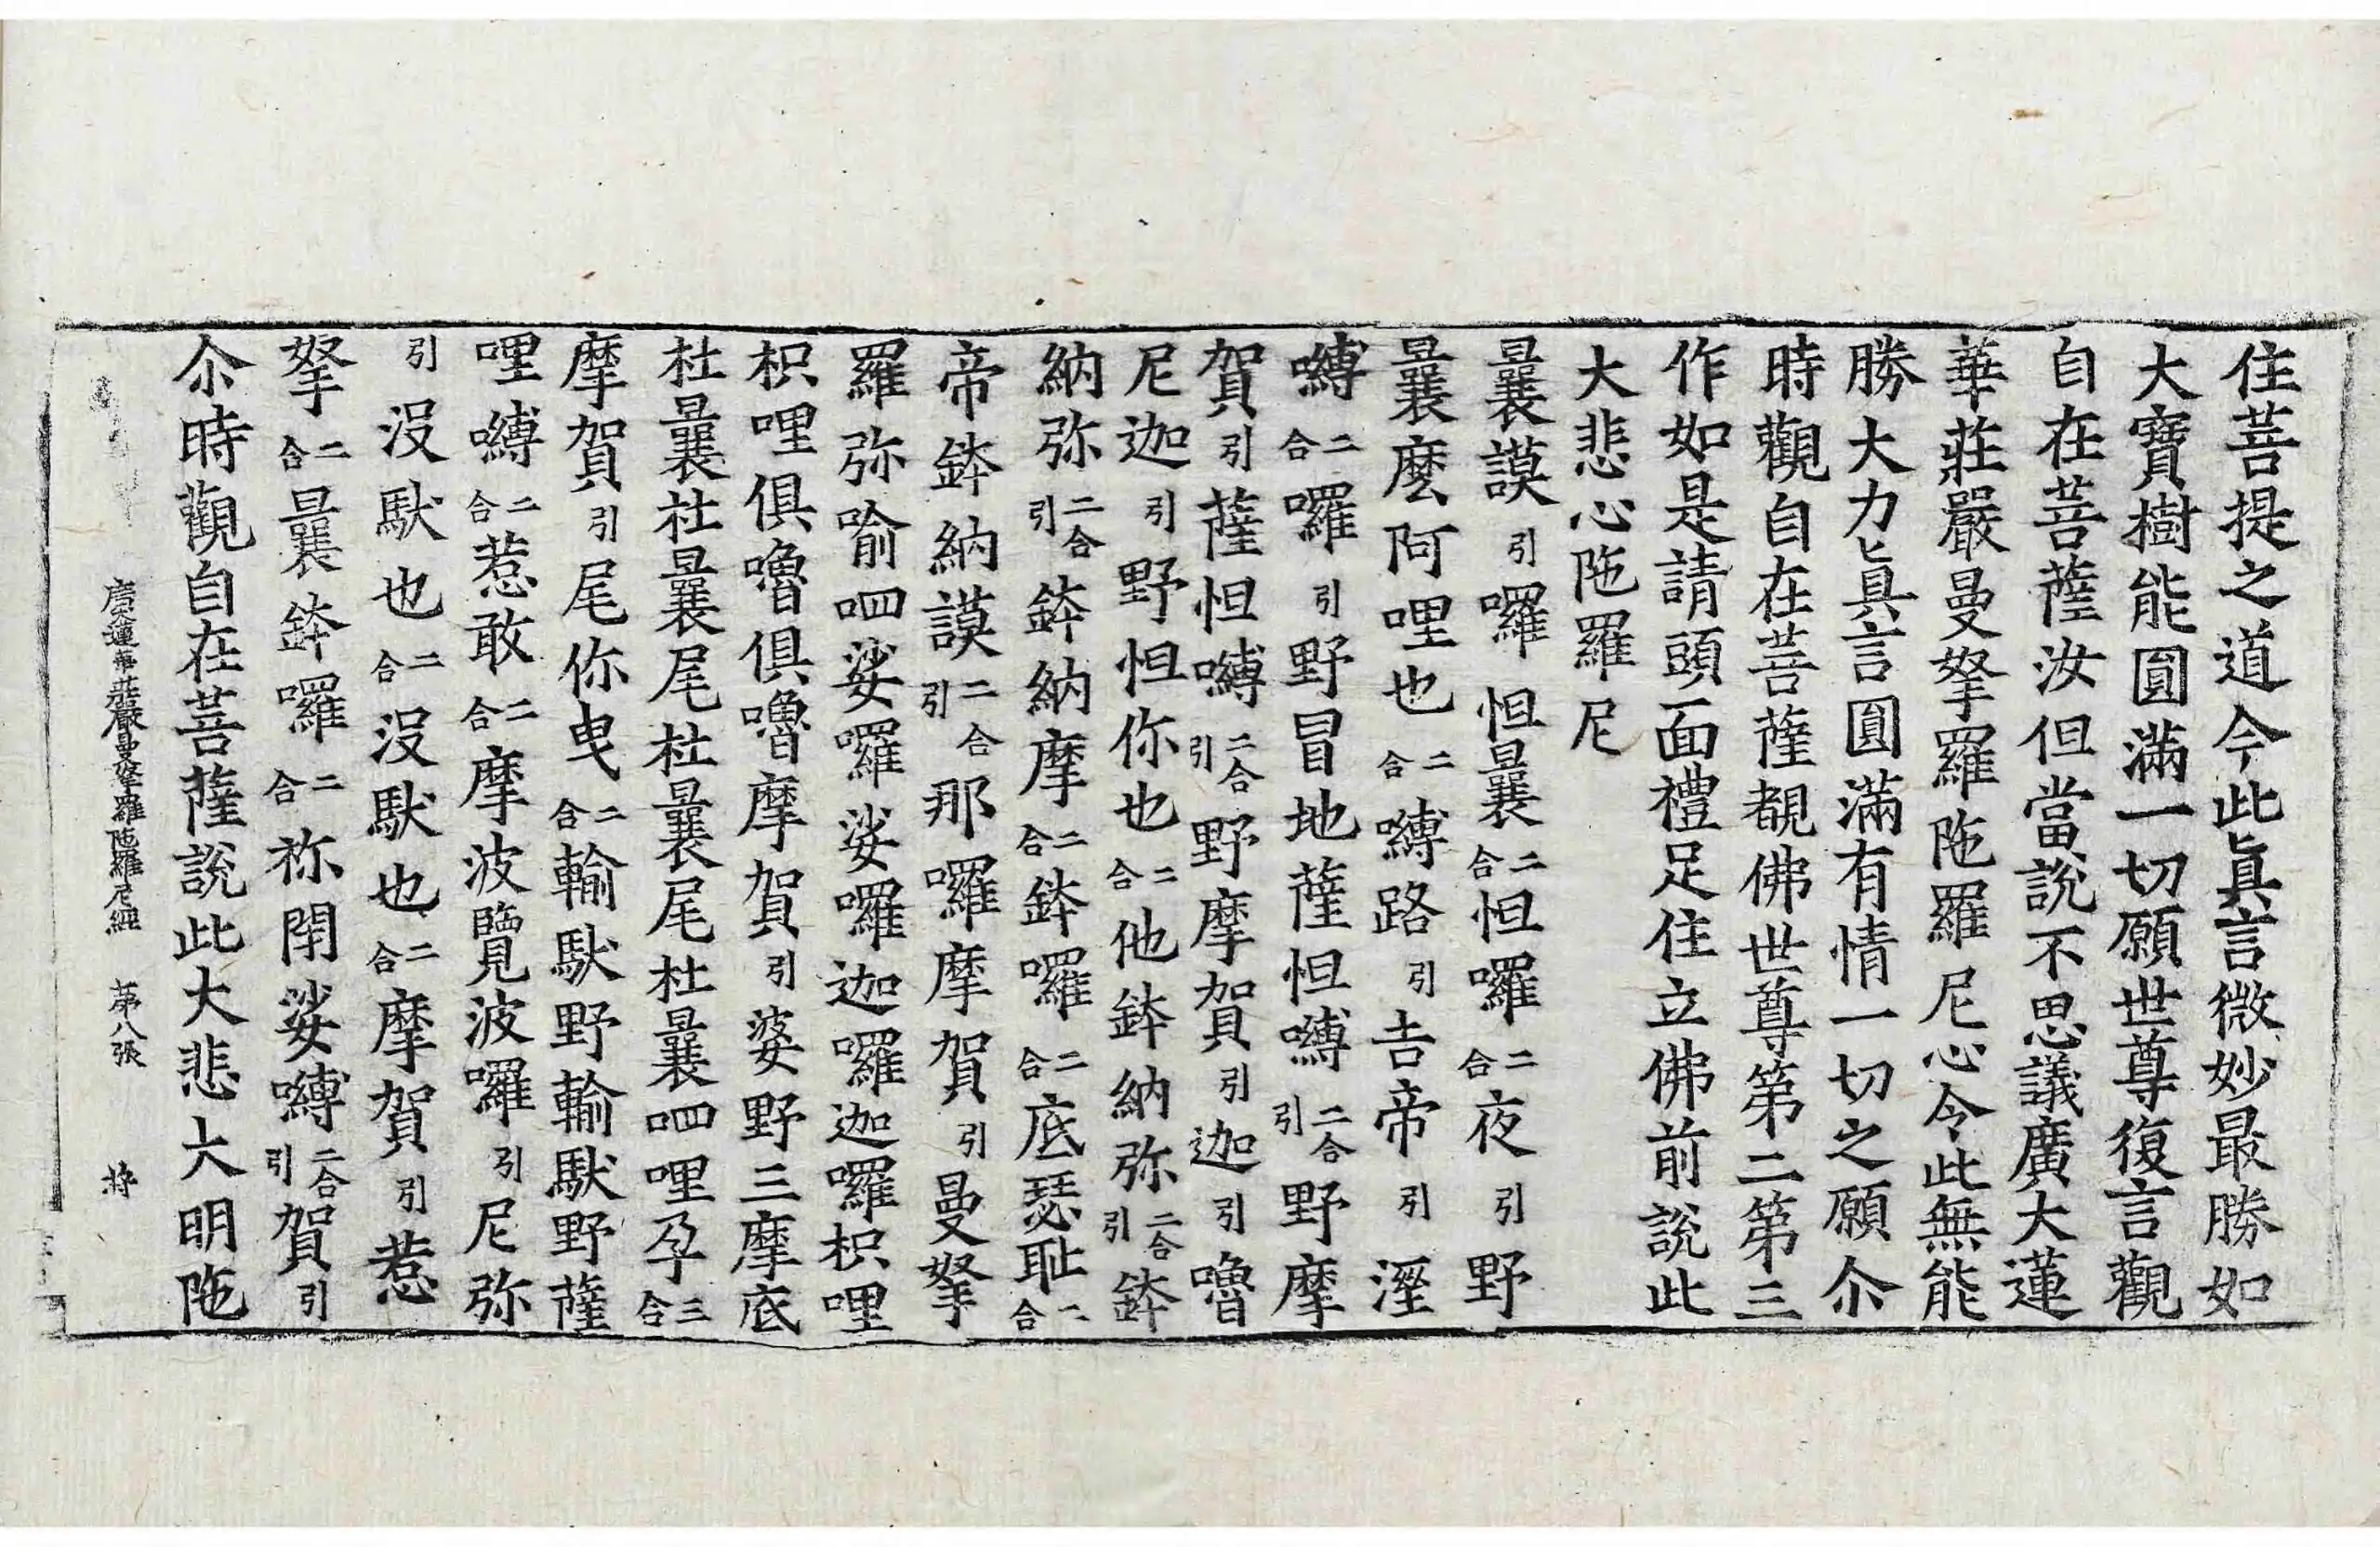 住菩提之道今此眞言微妙最勝如
大寶樹能圓滿一切願世尊復言觀
自在菩薩汝但當說不思議廣大蓮
華莊嚴曼拏羅陁羅尼心今此無能
勝大力眞言圓滿有情一切之願尒
時觀自在菩薩覩佛世尊第二第三
作如是請頭面禮足住立佛前說此
大悲心陁羅尼
曩謨引囉怛曩二合怛囉二合夜引野
曩麽阿哩也二合嚩路引吉帝引溼
嚩二合囉引野冒地薩怛嚩二合引野摩
賀引薩怛嚩二合引野摩賀引迦引嚕
尼迦引野怛你也二合他鉢納弥二合引鉢
納弥二合引鉢納摩二合鉢囉二合底瑟恥二合
帝鉢納謨二合引那囉摩賀引曼拏
羅弥喻呬娑囉娑囉迦囉迦囉枳哩
枳哩俱嚕俱嚕摩賀引婆野三摩底
杜曩杜曩尾杜曩尾杜曩呬哩孕三合
摩賀引尾你曳二合輸馱野輸馱野薩
哩嚩二合惹敢二合摩波覽波囉引尼弥
引沒馱也二合沒馱也二合摩賀引惹
拏二合曩鉢囉二合祢閇娑嚩二合引賀引
尒時觀自在菩薩說此大悲大明陁
廣大蓮華莊嚴曼拏羅陁羅尼經 第八張 將